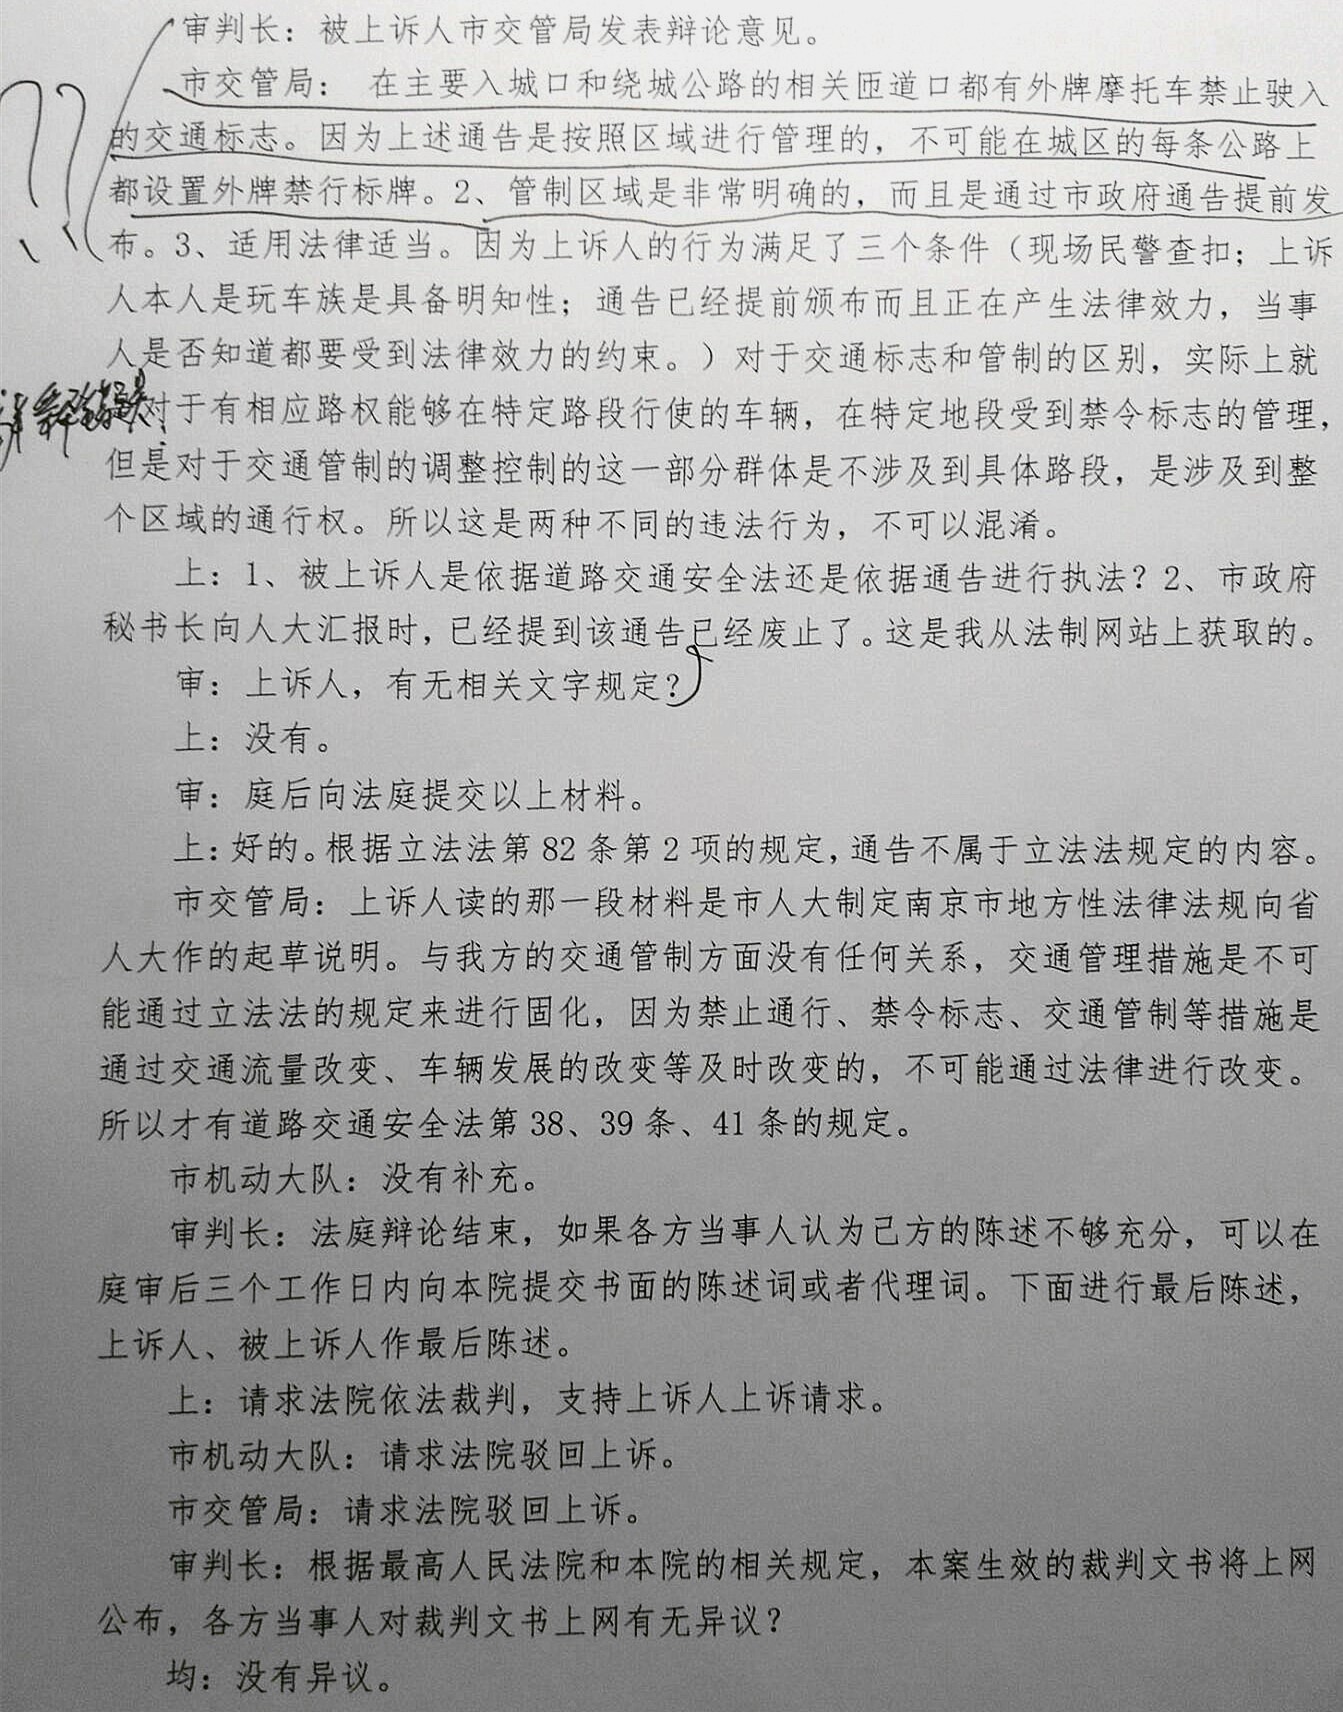 审判长：被上诉人市交管局发表辩论意见。
市交管局： 在主要入城口和绕城公路的相关匝道口都有外牌摩托车禁止驶入
的交通标志。因为上述通告是按照区域进行管理的，不可能在城区的每条公路上
都设置外牌禁行标牌。2、管制区域是非常明确的，而且是通过市政府通告提前发
布。3、适用法律适当。因为上诉人的行为满足了三个条件（现场民警查扣；上诉
人本人是玩车族是具备明知性；通告已经提前颁布而且正在产生法律效力，当事
人是否知道都要受到法律效力的约束。）对于交通标志和管制的区别，实际上就
对于有相应路权能够在特定路段行使的车辆，在特定地段受到禁令标志的管理，
但是对于交通管制的调整控制的这一部分群体是不涉及到具体路段，是涉及到整
个区域的通行权。所以这是两种不同的违法行为，不可以混淆。
上：1、被上诉人是依据道路交通安全法还是依据通告进行执法？2、市政府
秘书长向人大汇报时，已经提到该通告已经废止了。这是我从法制网站上获取的。
审：上诉人，有无相关文字规定？
上：没有。
审：庭后向法庭提交以上材料。
上：好的。根据立法法第 82 条第 2 项的规定，通告不属于立法法规定的内容。
市交管局：上诉人读的那一段材料是市人大制定南京市地方性法律法规向省
人大作的起草说明。与我方的交通管制方面没有任何关系，交通管理措施是不可
能通过立法法的规定来进行固化，因为禁止通行、禁令标志、交通管制等措施是
通过交通流量改变、车辆发展的改变等及时改变的，不可能通过法律进行改变。
所以才有道路交通安全法第 38、39 条、41 条的规定。
市机动大队：没有补充。
审判长：法庭辩论结束，如果各方当事人认为己方的陈述不够充分，可以在
庭审后三个工作日内向本院提交书面的陈述词或者代理词。下面进行最后陈述，
上诉人、被上诉人作最后陈述。
上：请求法院依法裁判，支持上诉人上诉请求。
市机动大队：请求法院驳回上诉。
市交管局：请求法院驳回上诉。
审判长：根据最高人民法院和本院的相关规定，本案生效的裁判文书将上网
公布，各方当事人对裁判文书上网有无异议？
均：没有异议。